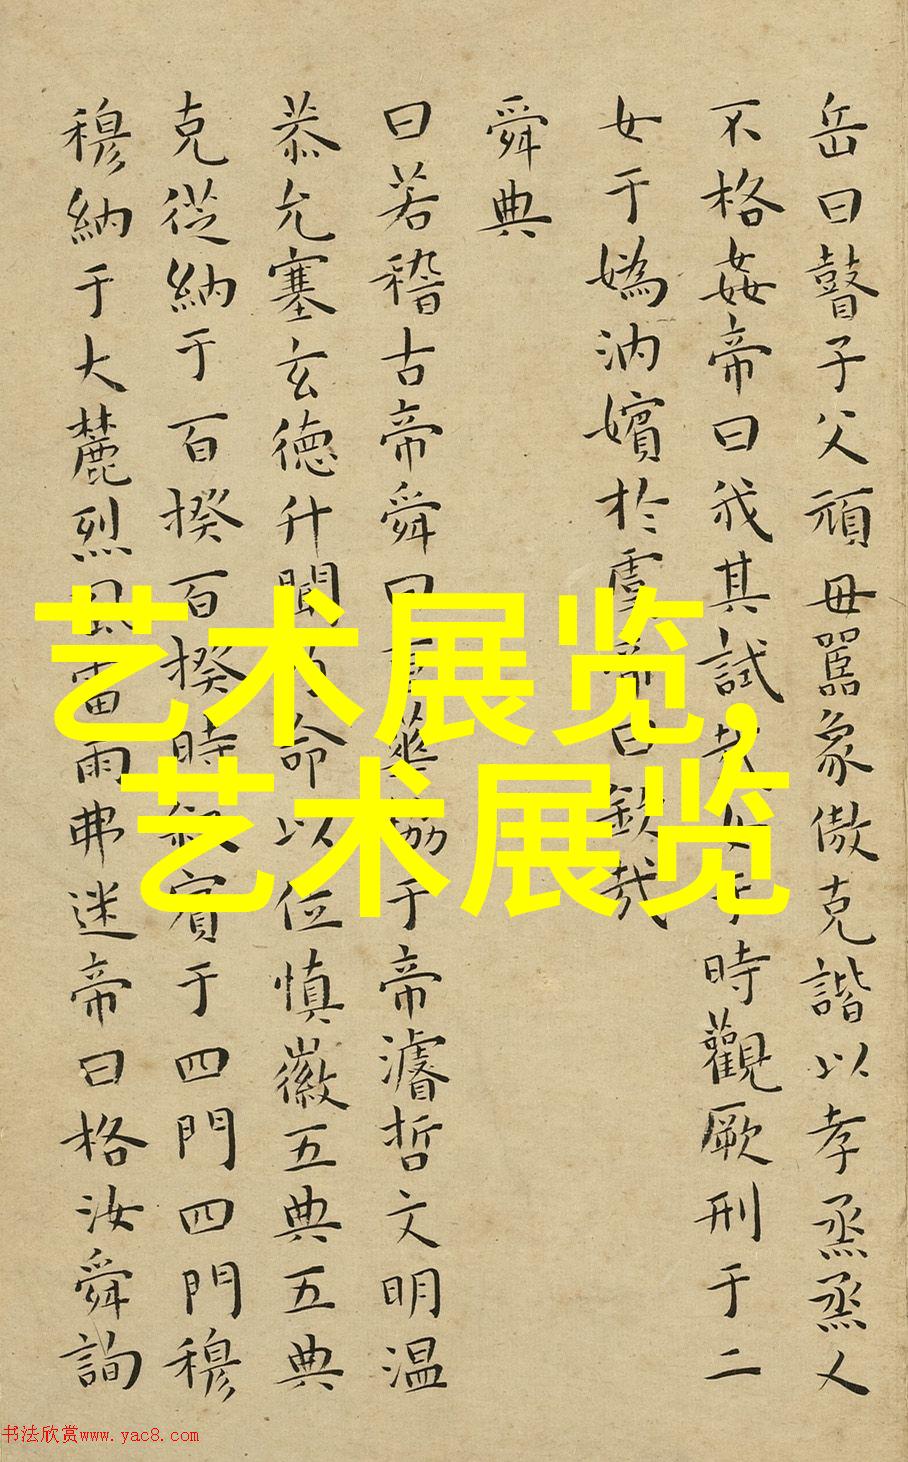 岳曰瞽子父頑毋嚚象傲克諧以孝烝烝乂
不格姦帝曰我其試哉女于時觀厥刑于二
女于媯汭嬪於虞帝曰欽哉
舜典
曰若稽古帝舜曰重華協于帝濬哲文明温
恭允塞玄德升聞乃命以位慎徽五典五典
克從納于百揆百揆時敘賓于四門四門穆
穆納于大麓烈風雷雨弗迷帝曰格汝舜詢
艺术展览,
艺术展览
书法欣赏www.yac8.com